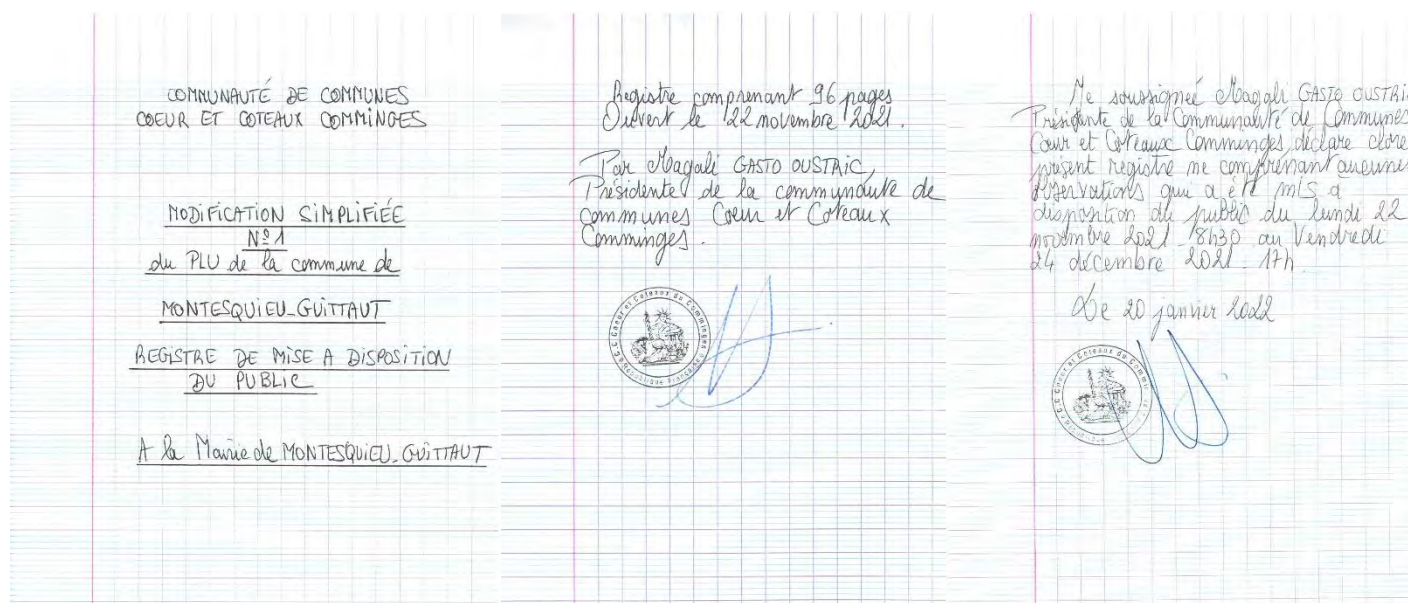 COMMUNAUTÉ DE COMMUNES
COEUR ET COTEAUX COMMINGES
MODIFICATION SIMPLIFIÉE
N°1
du PLU de la commune de
MONTESQUIEU-GUITTAUT
REGISTRE DE MISE A DISPOSITION
DU PUBLIC
A la Mairie de MONTESQUIEU-GUITTAUT
Registre comprenant 96 pages
Ouvert le 22 novembre 2021.
Par Magali GASTO OUSTRIC,
Présidente de la communauté de
communes Coeur et Coteaux
Comminges.
C.C Coeur et Coteaux du Comminges
République Française
Je soussignée Magali GASTO OUSTRIC
Présidente de la Communauté de Communes
Coeur et Coteaux Comminges déclare clore
présent registre ne comprenant aucunes
observations qui a été mis a
disposition du public du lundi 22
novembre 2021 - 8h30 au Vendredi
24 décembre 2021 - 17h.
Le 20 janvier 2022
Coeur et Coteaux du